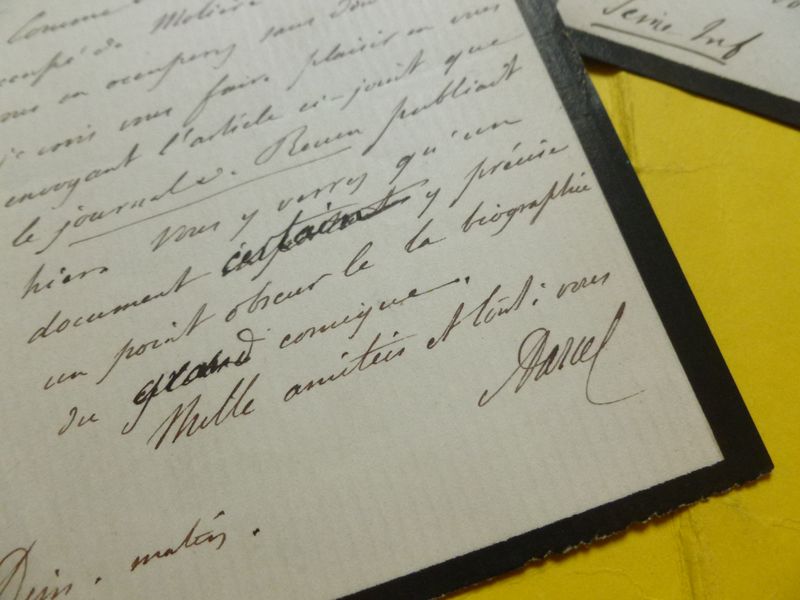 Comme
occupé de Molière
vous en occuperez sans dou
je crois vous faire plaisir en vous
envoyant l'article ci-joint que
le journal de Rouen publiait
hier. Vous y verrez qu'un
document certain y précise
un point obscur de la biographie
du grand comique.
Mille amitiés et tout à vous
Dim. matin.
Seine Inf